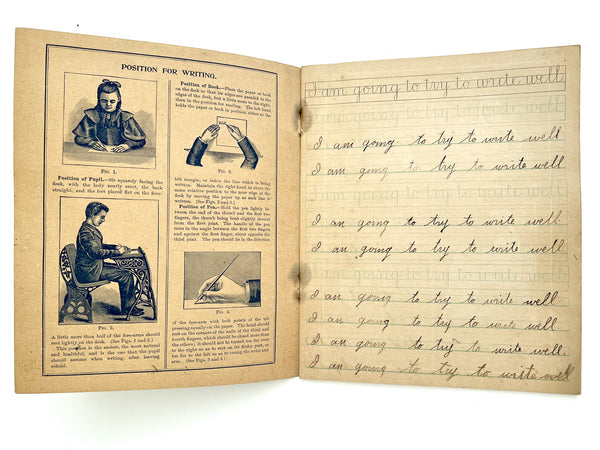 POSITION FOR WRITING.
FIG. 1.
Position of Pupil.—Sit squarely facing the
desk, with the body nearly erect, the back
straight, and the feet placed flat on the floor.
FIG. 2.
A little more than half of the fore-arms should
rest lightly on the desk. (See Figs. 1 and 2.)
This position is the easiest, the most natural
and healthful, and is the one that the pupil
should assume when writing, after leaving
school.
Position of Book.—Place the paper or book
on the desk so that its edges are parallel to the
edges of the desk, but a little more to the right,
than in the position for reading. The left hand
holds the paper or book in position, either at the
FIG. 3.
left margin, or below the line which is being
written. Maintain the right hand in about the
same relative position to the near edge of the
desk by moving the paper up as each line is
written. (See Figs. 2 and 3.)
Position of Pen.—Hold the pen lightly be-
tween the end of the thumb and the first two
fingers, the thumb being bent slightly inward
from the first joint. The handle of the pen
rests in the angle between the first two fingers
and against the first finger, about opposite the
third joint. The pen should lie in the direction
FIG. 4.
of the fore-arm with both points of the nib
pressing equally on the paper. The hand should
rest on the corners of the nails of the third and
fourth fingers, which should be closed more than
the others; it should not be turned too far over
to the right so as to rest on its fleshy part, nor
too far to the left so as to cramp the wrist and
arm. (See Figs. 3 and 4.)
I am going to try to write well
I am going to try to write well
I am going to try to write well
I am going to try to write well
I an going to try to write well
I an going to try to write well
I am going to try to write well
I am going to try to write well.
I an going to try to write well